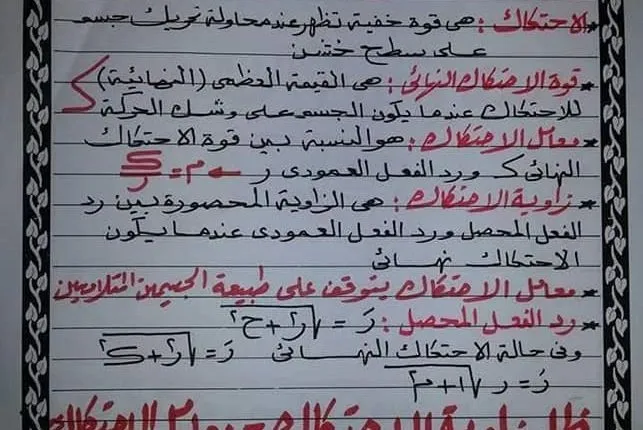 * الاحتكاك : هى قوة خفية تظهر عند محاولة تحريك جسم
على سطح خشن
* قوة الاحتكاك النهائى : هى القيمة العظمى (النهائية)
للاحتكاك عندما يكون الجسم على وشك الحركة
* معامل الاحتكاك : هو النسبة بين قوة الاحتكاك
النهائى ك ورد الفعل العمودى ر ← م = ك/ر
* زاوية الاحتكاك : هى الزاوية المحصورة بين رد
الفعل المحصل ورد الفعل العمودى عندما يكون
الاحتكاك نهائى
* معامل الاحتكاك يتوقف على طبيعة الجسمين المتلامسين
* رد الفعل المحصل : رَ = √(ر² + ح²)
وفى حالة الاحتكاك النهائى رَ = √(ر² + ك²)
رَ = ر √(١ + م²)
الاحتكاك